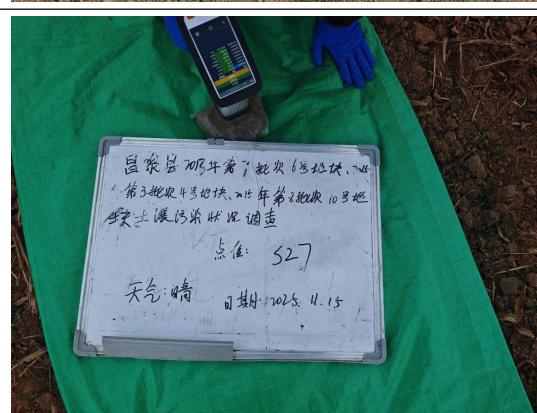 昌黎县2015年第7批次6号地块、2015
年第3批次4号地块、2015年第2批次10号地
块土壤污染状况调查
点位: S27
天气:晴 日期:2025.11.15